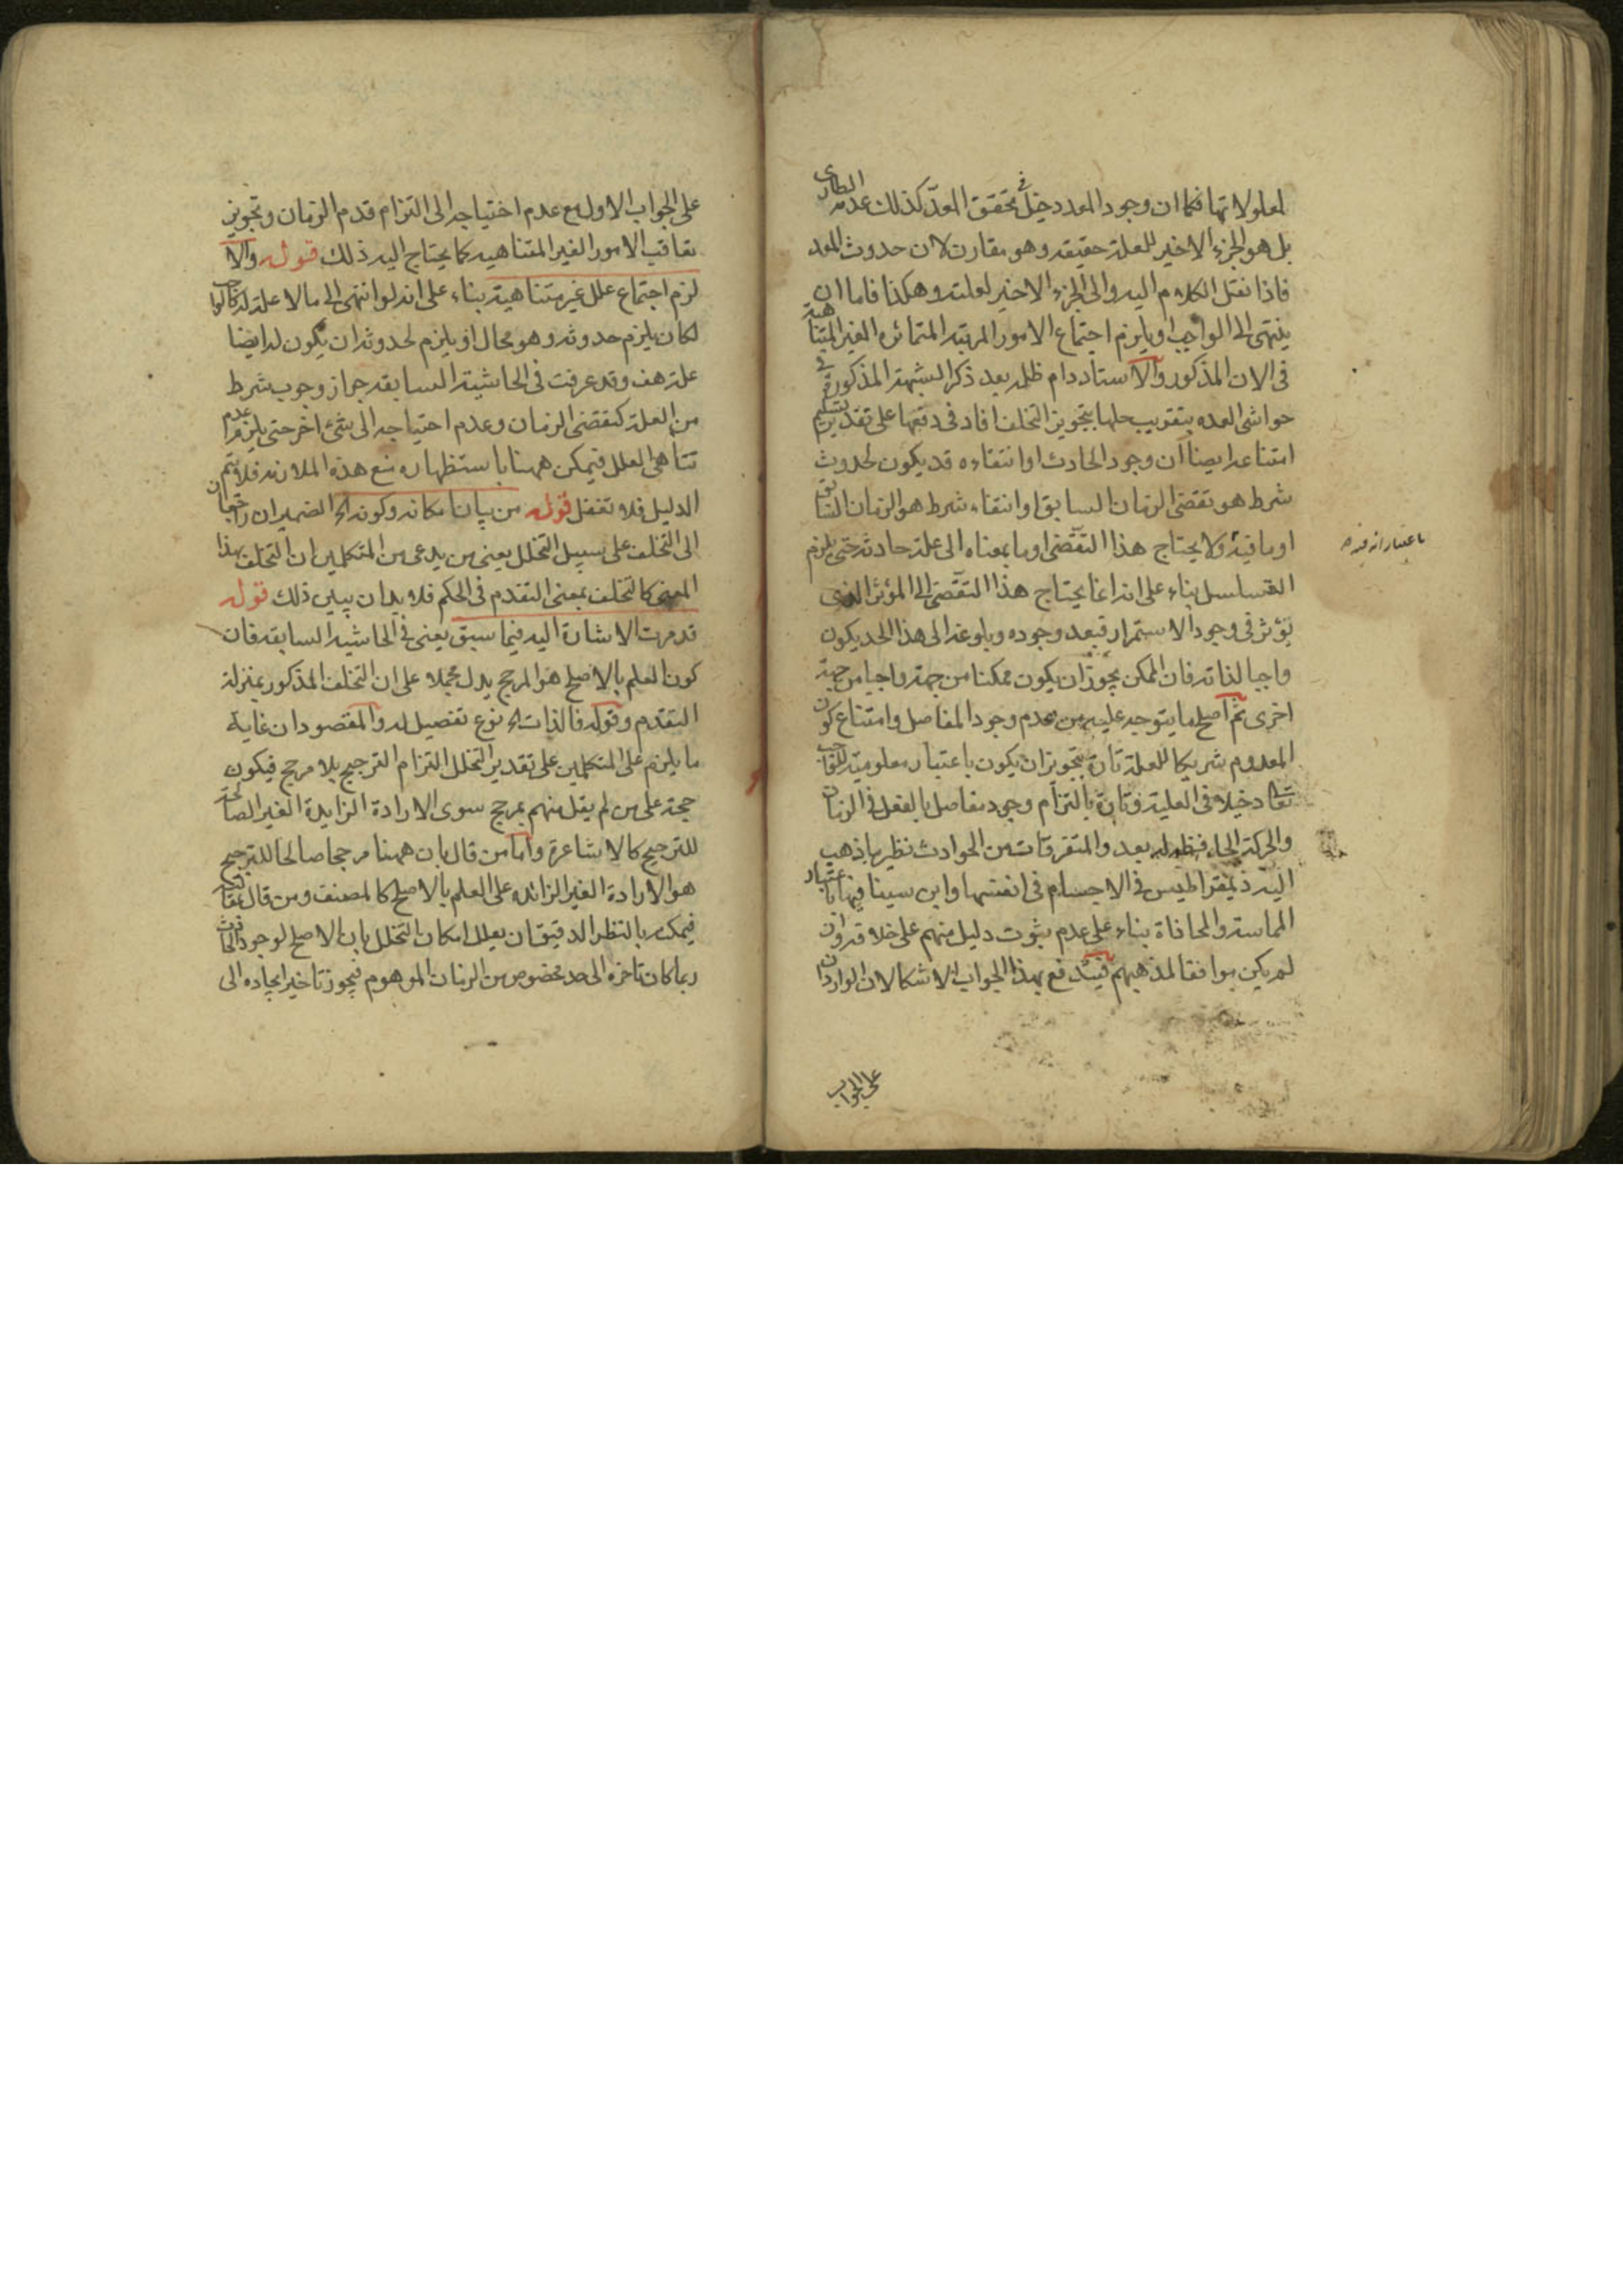 لمعلولاتها فكما ان وجود المعد دخيل في تحقق المعدّ كذلك عدمه الطاري
بل هو الجزء الاخير للعلة حقيقة وهو مقارن لان حدوث المعد
فاذا نقل الكلام اليه والى الجزء الاخير لعلته وهكذا فاما ان
ينتهى الى الواجب او يلزم اجتماع الامور المرتبة المتمائزه الغير المتناهية
فى الان المذكور والاستاد دام ظله بعد ذكر الشبهة المذكورة في
حواشى العده بتقريب حلها بتجويز التخلف افاد فى دفعها على تقدير تسليم
امتناعه ايضا ان وجود الحادث او انتفاءه قد يكون لحدوث
شرط هو تقضى الزمان السابق او انتفاء شرط هو الزمان السابق
او ما فيه ولا يحتاج هذا التقضى او ما بمعناه الى علة حادثة حتى يلزم
التسلسل بناء على انه انما يحتاج هذا التقضى الى المؤثر الذى
يؤثر فى وجود الاستمرار فبعد وجوده وبلوغه الى هذا الحد يكون
واجبا لذاته فان الممكن يجوز ان يكون ممكنا من جهة واجبا من جهة
اخرى ثم اصلح ما يتوجه عليه من عدم وجود المفاصل وامتناع كون
المعدوم شريكا للعلة تارة بتجويز ان يكون باعتبار معلوميته للواجب
تعالى دخيلا فى العلية وتارة بالتزام وجود مفاصل بالفعل فى الزمان
والحركة الحاء بعد والمتفرقات من الحوادث نظير ما ذهب
اليه ذيمقراطيس فى الاجسام فى انفسها وابن سينا فيها باعتبار
المماسة والمحاذاة بناء على عدم ثبوت دليل منهم على خلافه وان
لم يكن موافقا لمذهبهم فيندفع بهذا الجواب الاشكالان الواردان
على الجواب
باعتبار انه فيه
على الجواب الاول مع عدم احتياجه الى التزام قدم الزمان وتجويز
تعاقب الامور الغير المتناهية كما يحتاج اليه ذلك قوله والا
لزم اجتماع علل غير متناهية بناء على انه لو انتهى الى ما لا علة له كالواجب
لكان يلزم حدوثه وهو محال او يلزم لحدوثه ان يكون له ايضا
علة هف وقد عرفت فى الحاشية السابقه جواز وجوب شرط
من العلة كتقضى الزمان وعدم احتياجه الى شئ اخر حتى يلزم عدم
تناهى العلل فيمكن ههنا باستظهاره منع هذه الملازمه فلا يتم
الدليل فلا تغفل قوله من بيان امكانه وكونه الخ الضميران راجعان
الى التخلف على سبيل التخلل يعنى من يدعى من المتكلمين ان التخلف بهذا
المعنى كالتخلف بمعنى التقدم فى الحكم فلا بد ان يبين ذلك قوله
قد مرت الاشارة اليه فيما سبق يعنى فى الحاشيه السابقه فان
كون العلم بالاصلح هو المرجح يدل مجملا على ان التخلف المذكور بمنزلة
التقدم وقوله فالذات الخ نوع تفصيل له والمقصود ان غاية
ما يلزم على المتكلمين على تقدير التخلل التزام الترجيح بلا مرجح فيكون
حجة على من لم يقل منهم بمرجح سوى الارادة الزايدة الغير الصالحة
للترجيح كالاشاعرة واما من قال بان ههنا مرجحا صالحا للترجيح
هو الارادة الغير الزائدة على العلم بالاصلح كالمصنف ومن قال بمقالته
فيمكنه بالنظر الدقيق ان يعلل امكان التخلل بان الاصلح لوجود الحادث
ربما كان تاخره الى حد مخصوص من الزمان الموهوم فيجوز تاخير ايجاده الى